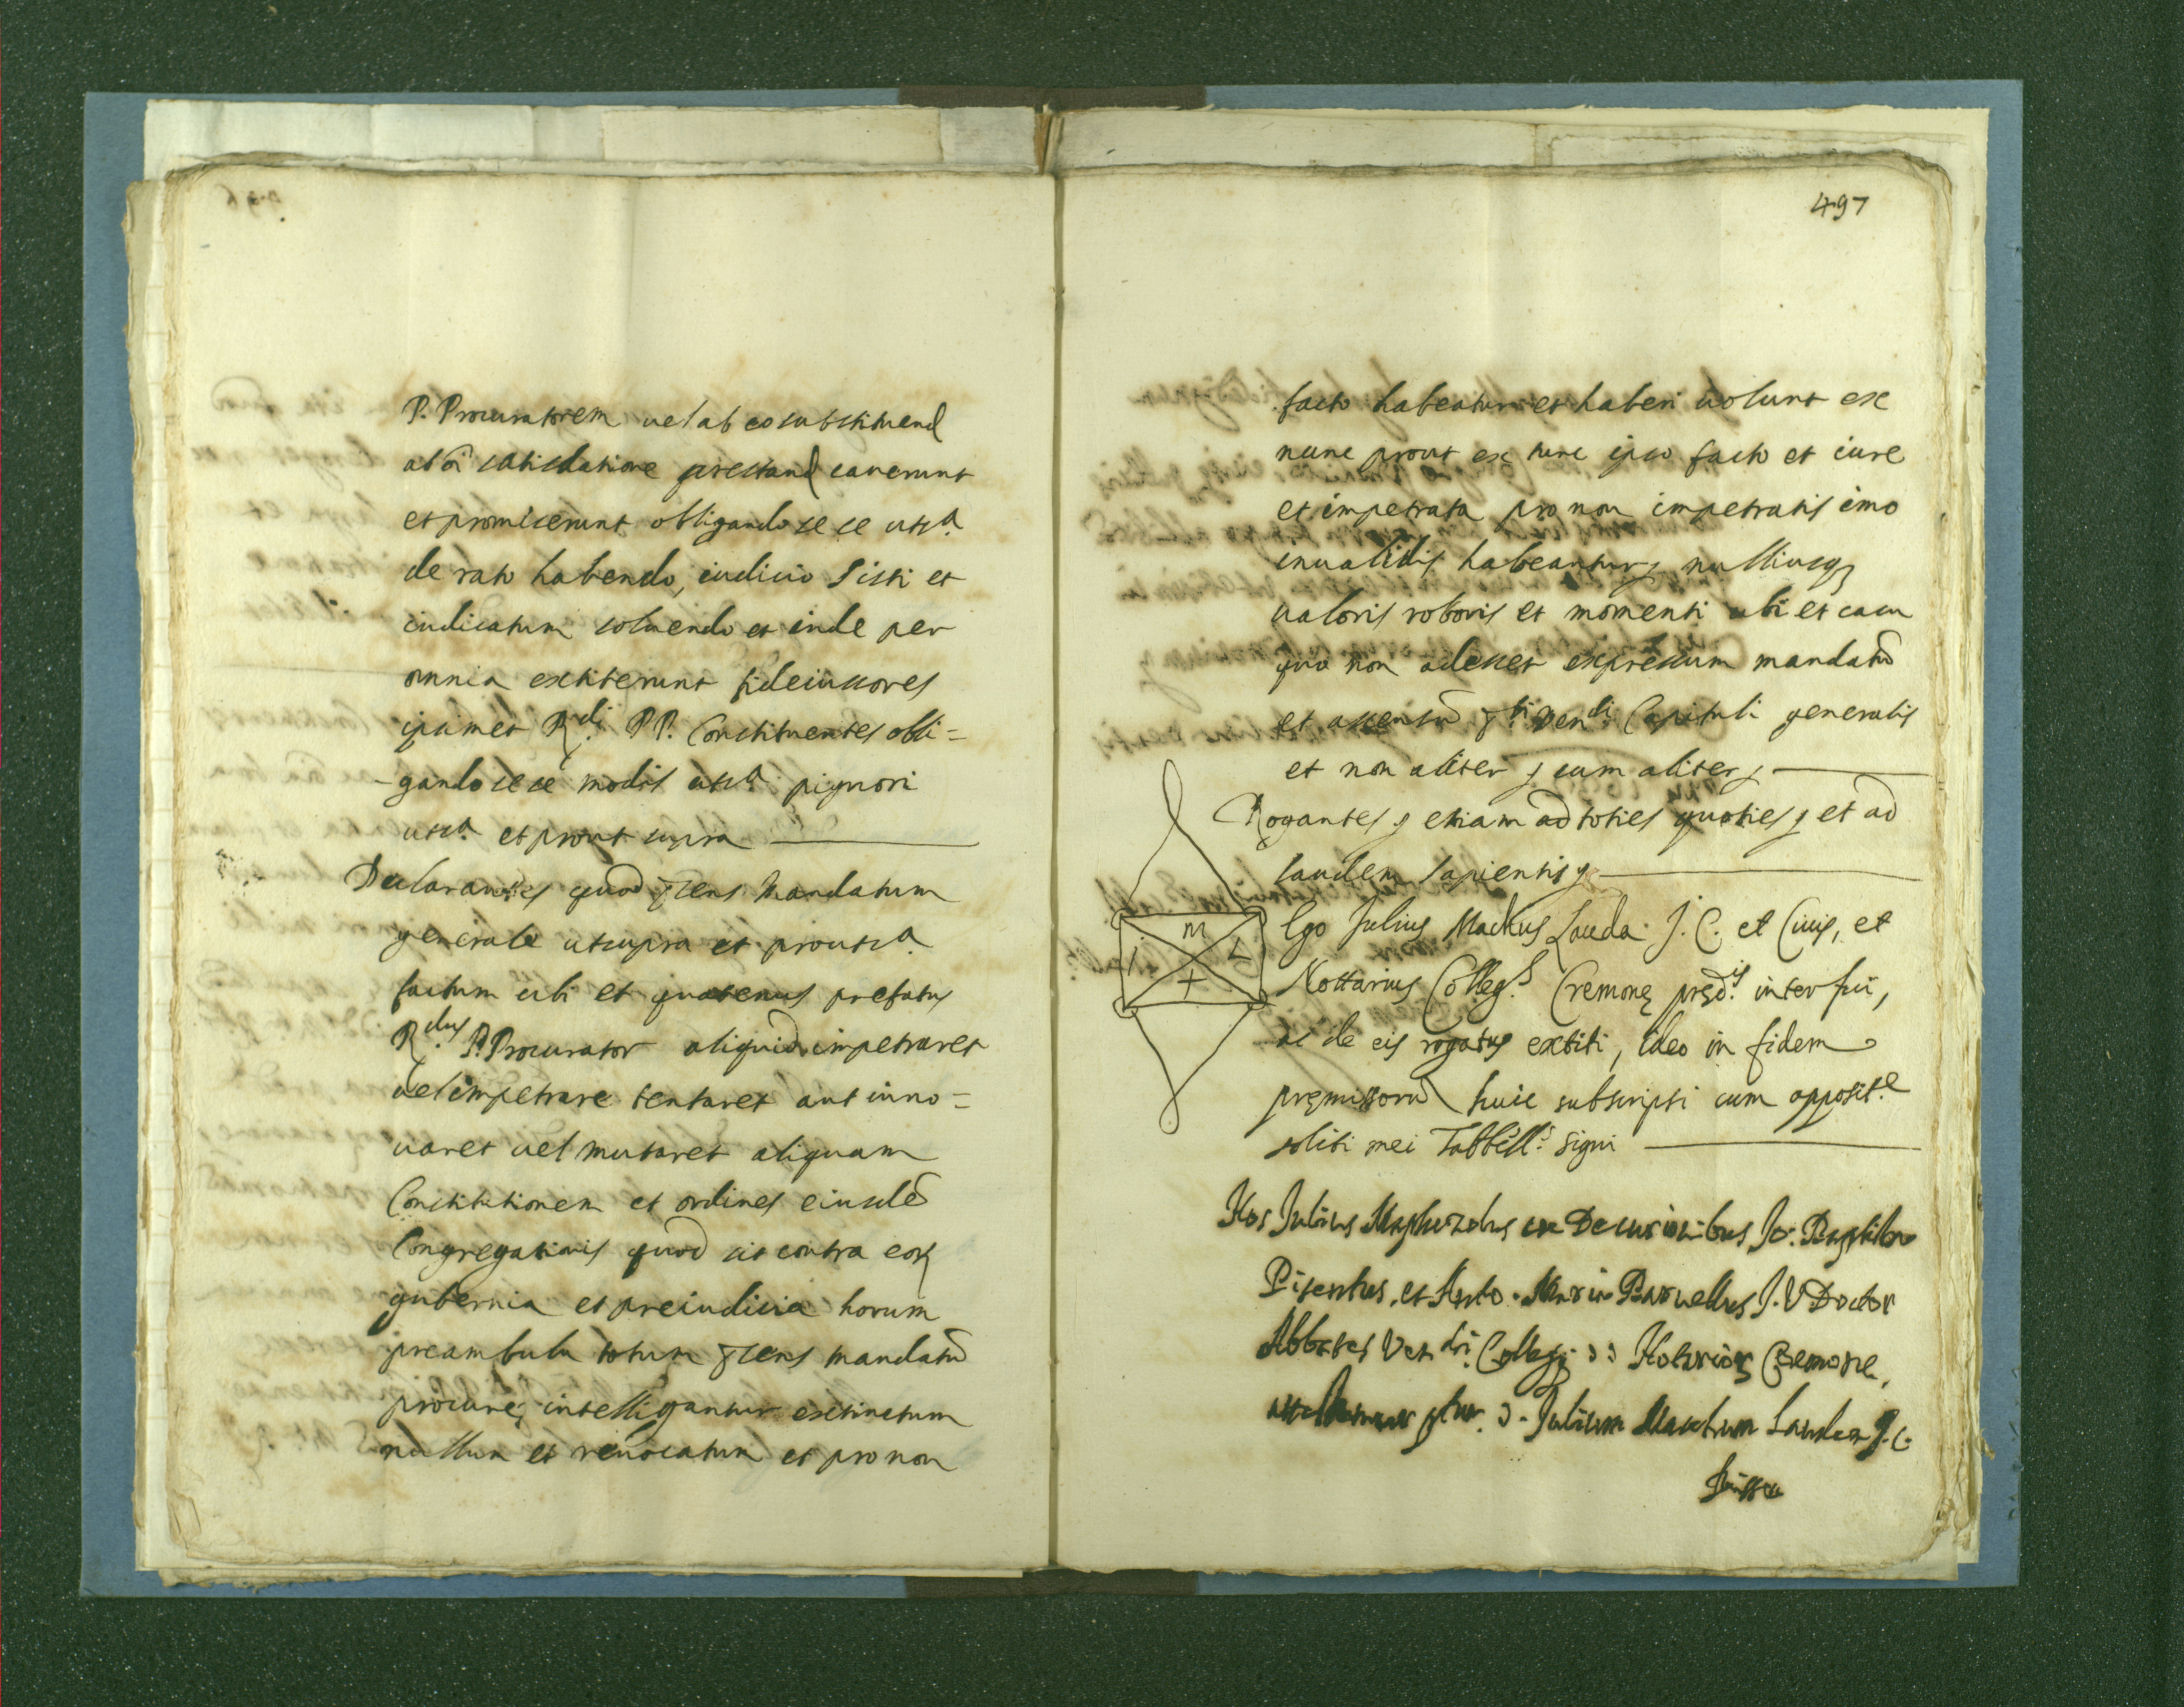 P. Procuratorem uel ab eo substituend
ab õi satisdatione prestand cauerunt
et promiserunt obligando se se uts.a
de rato habendo, iudicio sisti et
iudicatum soluendo et inde per
omnia extiterunt fideiussores
ipsimet R.di PP. Constituentes obli=
-gando se se modis uts.a pignori
uts.a et prout supra
Declarantes quod p̃sens Mandatum
generale ut supra et prouts.a
factum ubi et quatenus prefatus
R.dus P. Procurator aliquid impetraret
uel impetrare tentaret aut inno=
uaret uel mutaret aliquam
Constitutionem et ordines eiusdẽ
Congregationis quod sit contra eoꝝ
gubernia et preiudicia horum
preambula totum p̃sens mandatũ
procure, intelligantur extinctum
nullum et reuocatum et pro non
497
facto habeatur et haberi uolunt ex
nunc prout ex tunc ipso facto et iure
et impetrata pro non impetratis imo
inualidis habeantur, nulliusqꝫ
ualoris roboris et momenti ubi et casu
quo non adesset expressum mandatũ
et assensũ p.ti Ven.di Capituli generalis
et non aliter ꝭ cum aliter ꝭ
Rogantes ꝭ etiam ad toties quoties ꝭ et ad
laudem sapientis ꝭ
m
i L
+
Ego Julius Mactius Lauda J. C. et Ciuis, et
Nottarius Colleg.s Cremonę pręd.is interfui,
ac de eis rogatus extiti, ideo in fidem
pręmissorũ huic subscripsi cum opposit.e
soliti mei Tabbell.s signi
Nos Julius ex Decurionibus Jo. Baptista
et Anto. Maria J. V Doctor
Abbates Ven.di Collegij DD. Notarioꝝ Cremone,
D. Julium Lauda J. C.